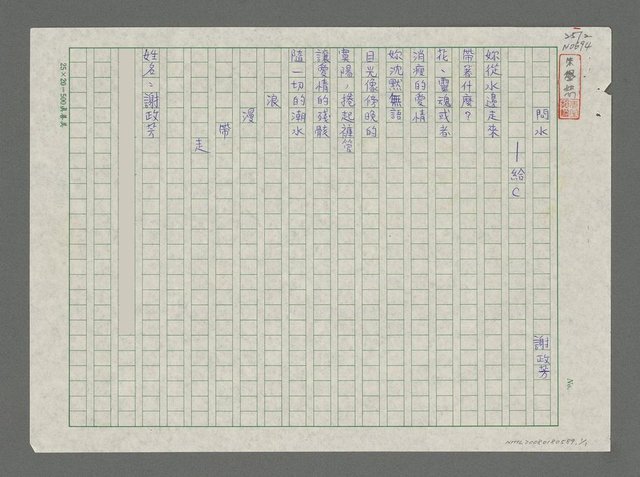 問水
謝政芳
—給C
妳從水邊走來
帶來什麼?
花、靈魂或者
消瘦的愛情
妳沈默無語
目光像傍晚的
夕陽,捲起褲管
讓愛情的殘骸
隨一切的潮水
浪
漫
帶
走
姓名:謝政芳
25×20=500
No.
NMTL20080180589. 1/1